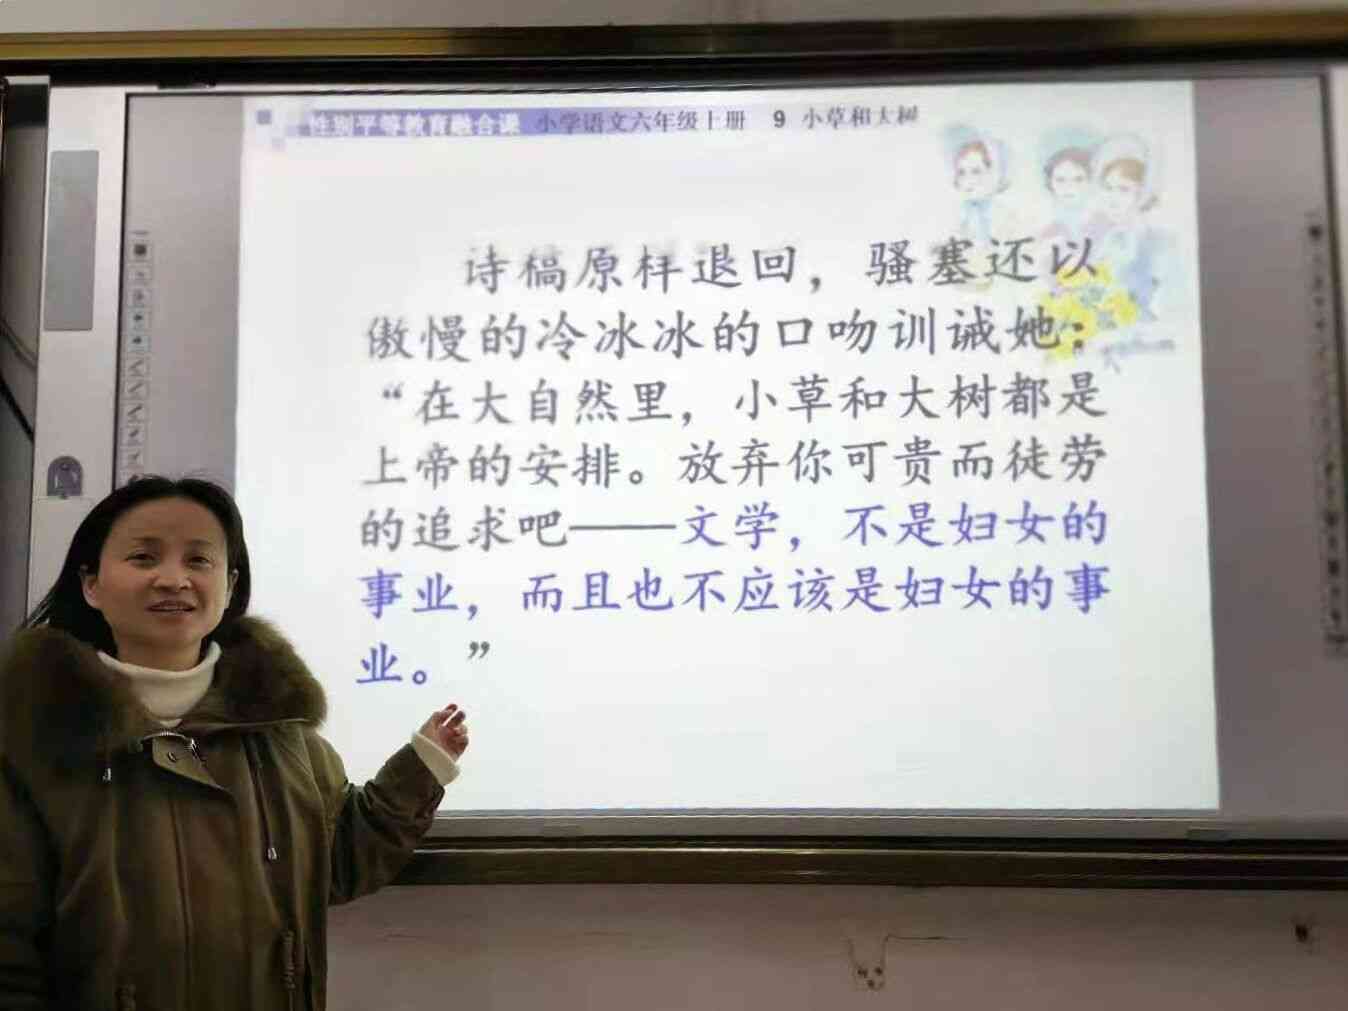 性别平等教育融合课 小学语文六年级上册 9 小草和大树
诗稿原样退回，骚塞还以
傲慢的冷冰冰的口吻训诫她：
“在大自然里，小草和大树都是
上帝的安排。放弃你可贵而徒劳
的追求吧——文学，不是妇女的
事业，而且也不应该是妇女的事
业。”